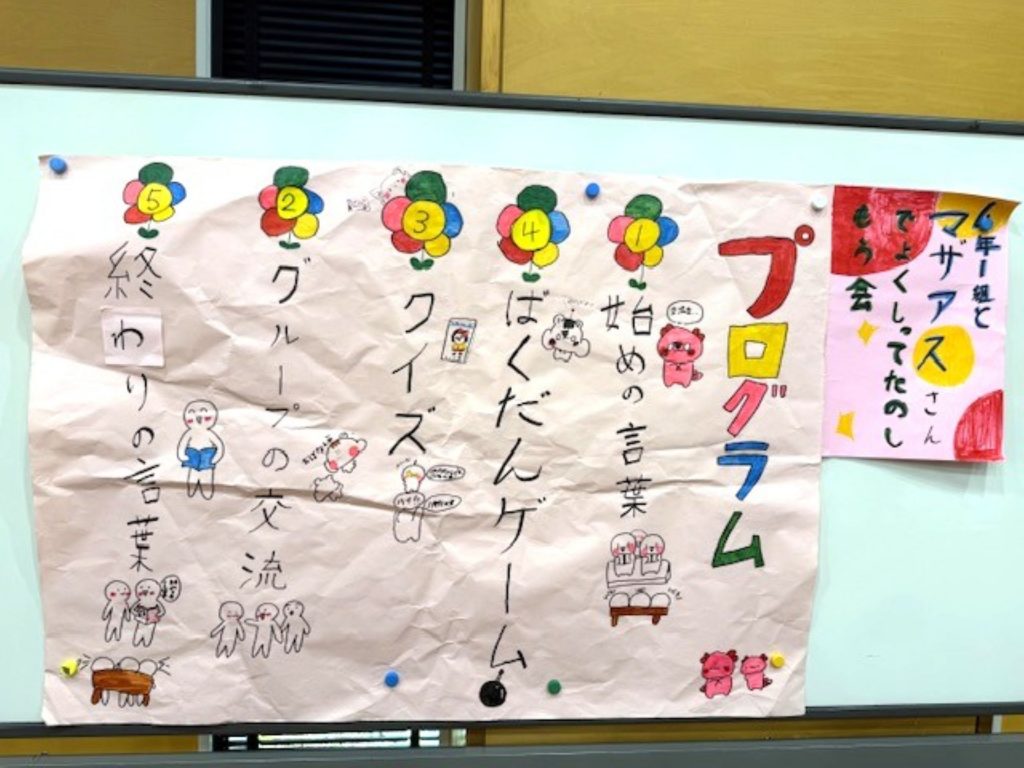 6年1組と
マザアスさん
でよくしってたのし
もう会
プログラム
1
始めの言葉
4
ばくだんゲーム
3
クイズ
2
グループの交流
5
終わりの言葉